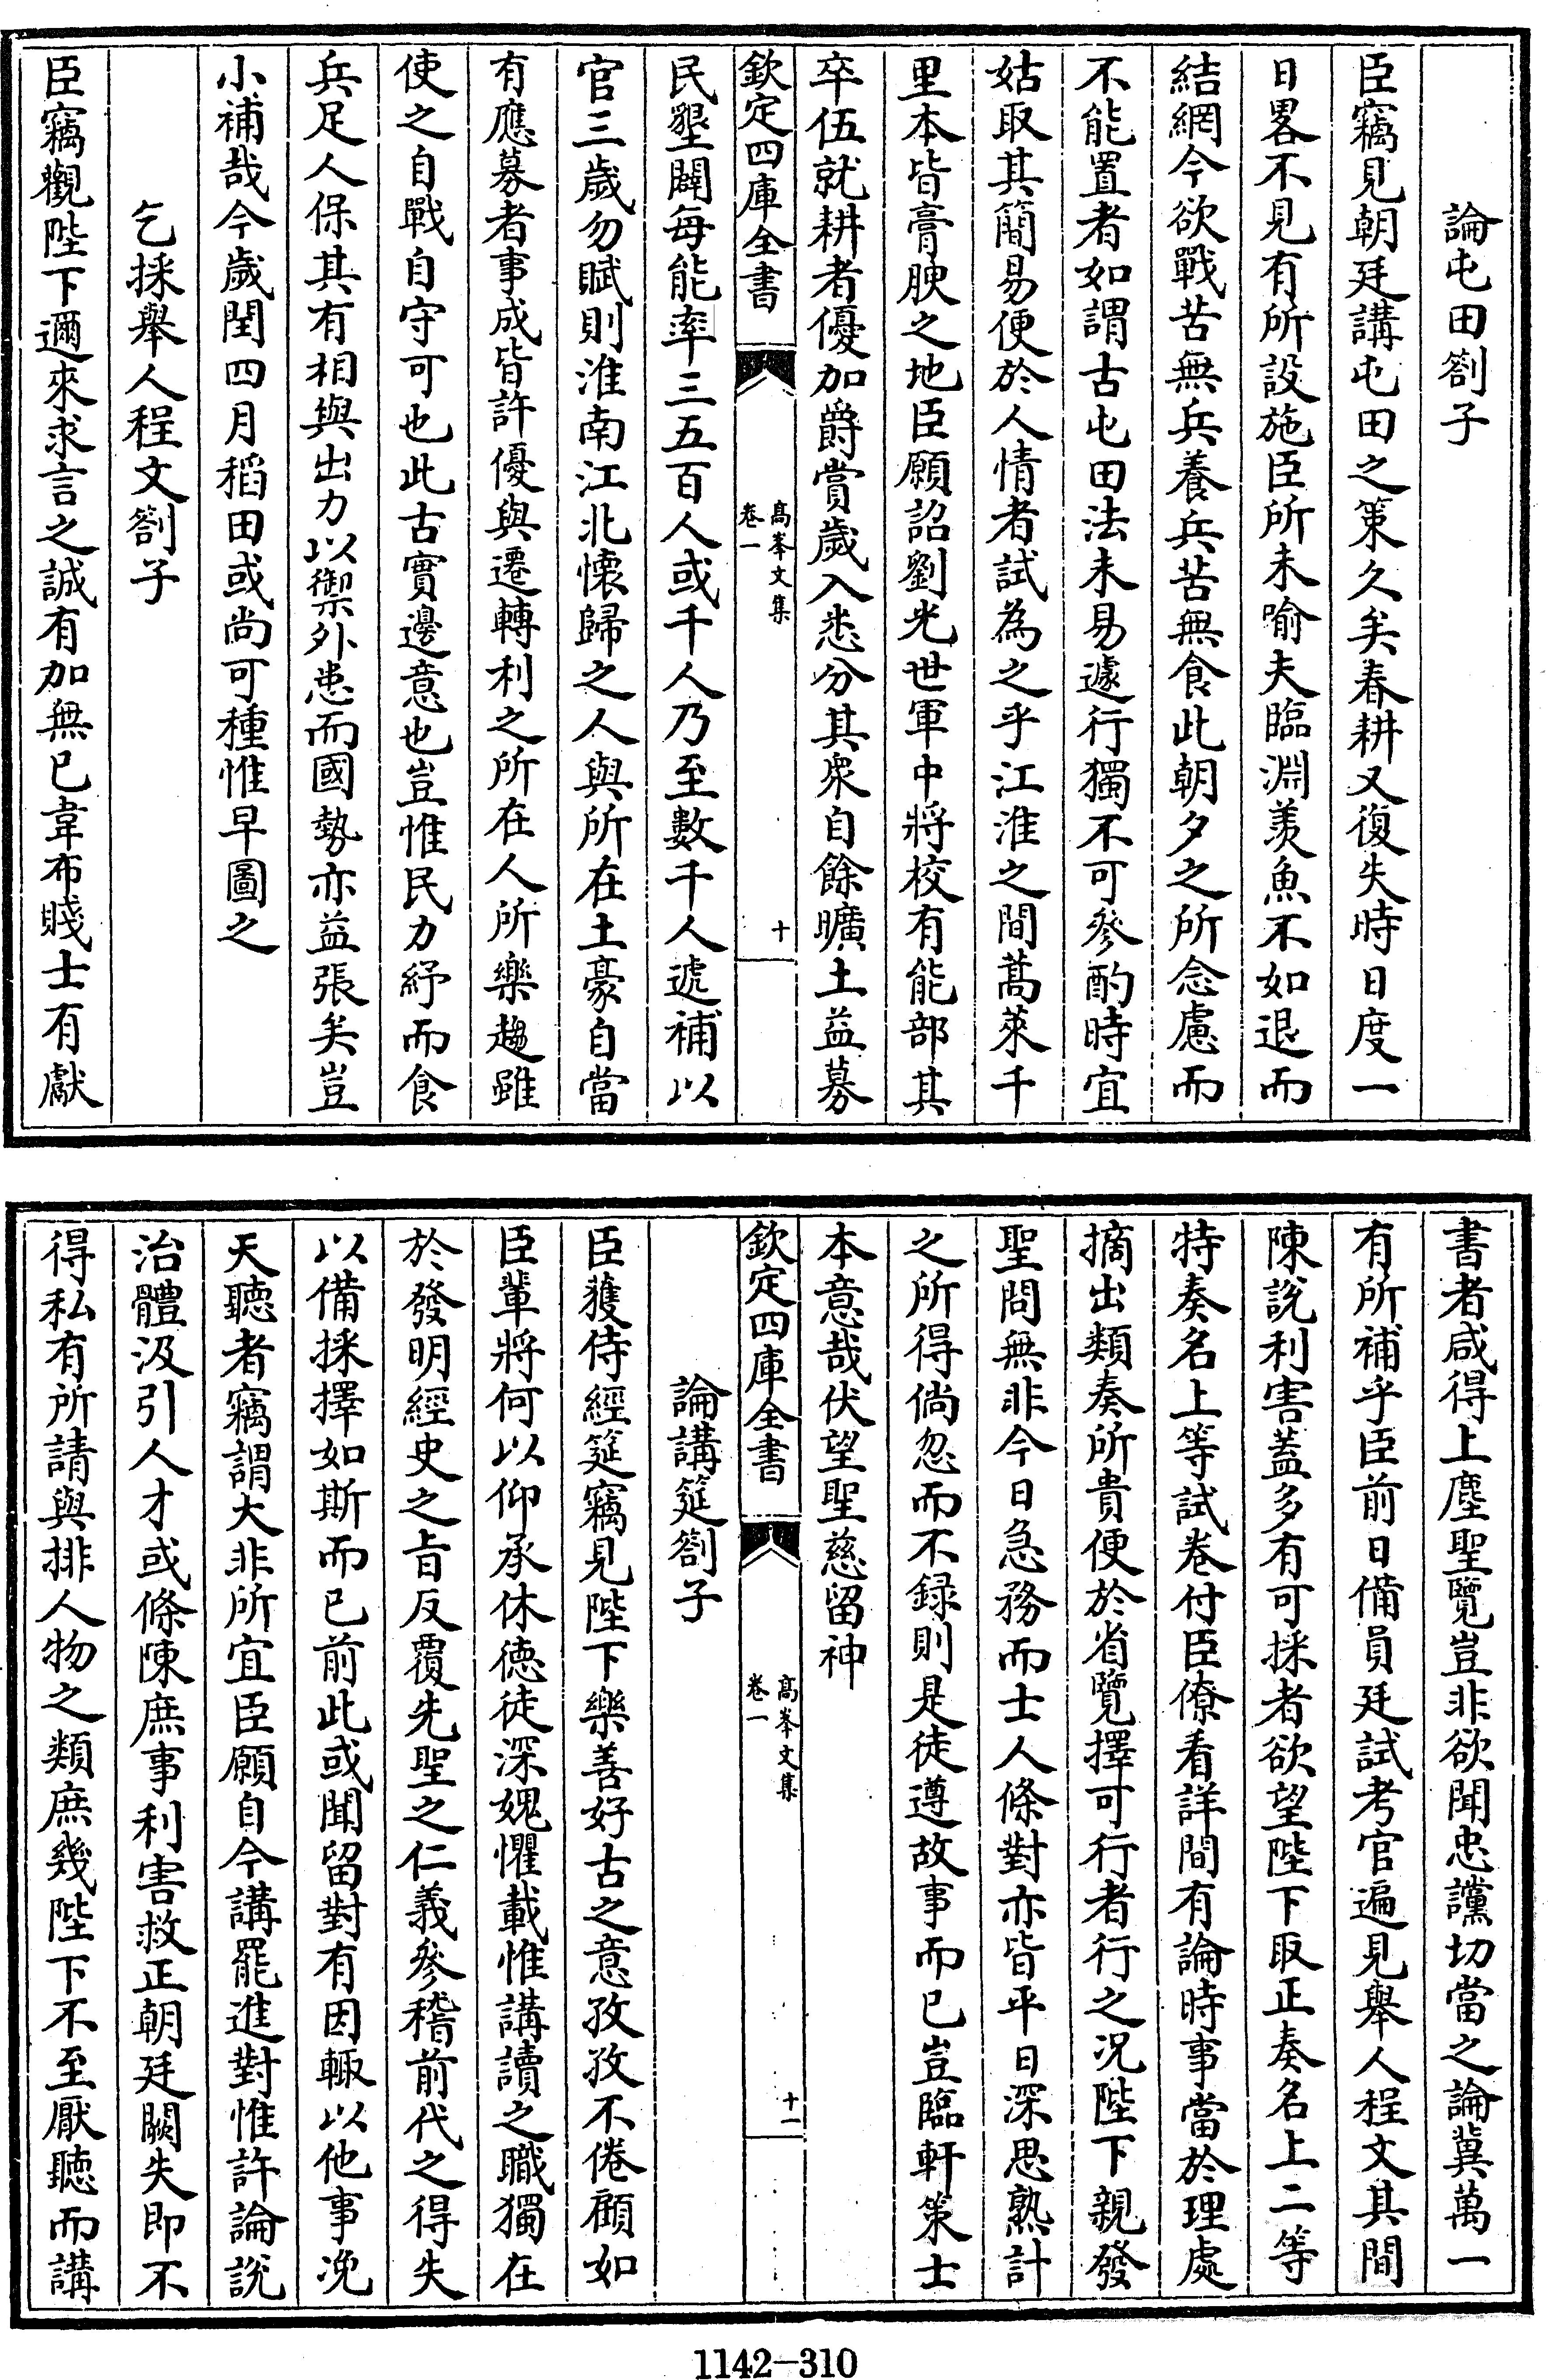 論屯田劄子
臣竊見朝廷講屯田之策久矣春耕又復失時日度一
日畧不見有所設施臣所未喻夫臨淵羡魚不如退而
結網今欲戰苦無兵養兵苦無食此朝夕之所念慮而
不能置者如謂古屯田法未易遽行獨不可參酌時宜
姑取其簡易便於人情者試為之乎江淮之間蒿萊千
里本皆膏腴之地臣願詔劉光世軍中將校有能部其
卒伍就耕者優加爵賞歲入悉分其衆自餘曠土益募
欽定四庫全書
高峯文集
卷一
十
民墾闢每能率三五百人或千人乃至數千人遞補以
官三歲勿賦則淮南江北懷歸之人與所在土豪自當
有應募者事成皆許優與遷轉利之所在人所樂趨雖
使之自戰自守可也此古實邊意也豈惟民力紓而食
兵足人保其有相與出力以禦外患而國勢亦益張矣豈
小補哉今歲閏四月稻田或尚可種惟早圖之
乞採舉人程文劄子
臣竊觀陛下邇來求言之誠有加無已韋布賤士有獻
書者咸得上塵聖覽豈非欲聞忠讜切當之論冀萬一
有所補乎臣前日備員廷試考官遍見舉人程文其間
陳説利害蓋多有可採者欲望陛下取正奏名上二等
特奏名上等試卷付臣僚看詳間有論時事當於理處
摘出類奏所貴便於省覽擇可行者行之况陛下親發
聖問無非今日急務而士人條對亦皆平日深思熟計
之所得倘忽而不録則是徒遵故事而已豈臨軒策士
本意哉伏望聖慈留神
欽定四庫全書
高峯文集
卷一
十一
論講筵劄子
臣獲侍經筵竊見陛下樂善好古之意孜孜不倦顧如
臣輩將何以仰承休德徒深媿懼載惟講讀之職獨在
於發明經史之旨反覆先聖之仁義參稽前代之得失
以備採擇如斯而已前此或聞留對有因輙以他事浼
天聽者竊謂大非所宜臣願自今講罷進對惟許論説
治體汲引人才或條陳庶事利害救正朝廷闕失即不
得私有所請與排人物之類庶幾陛下不至厭聽而講
1142-310